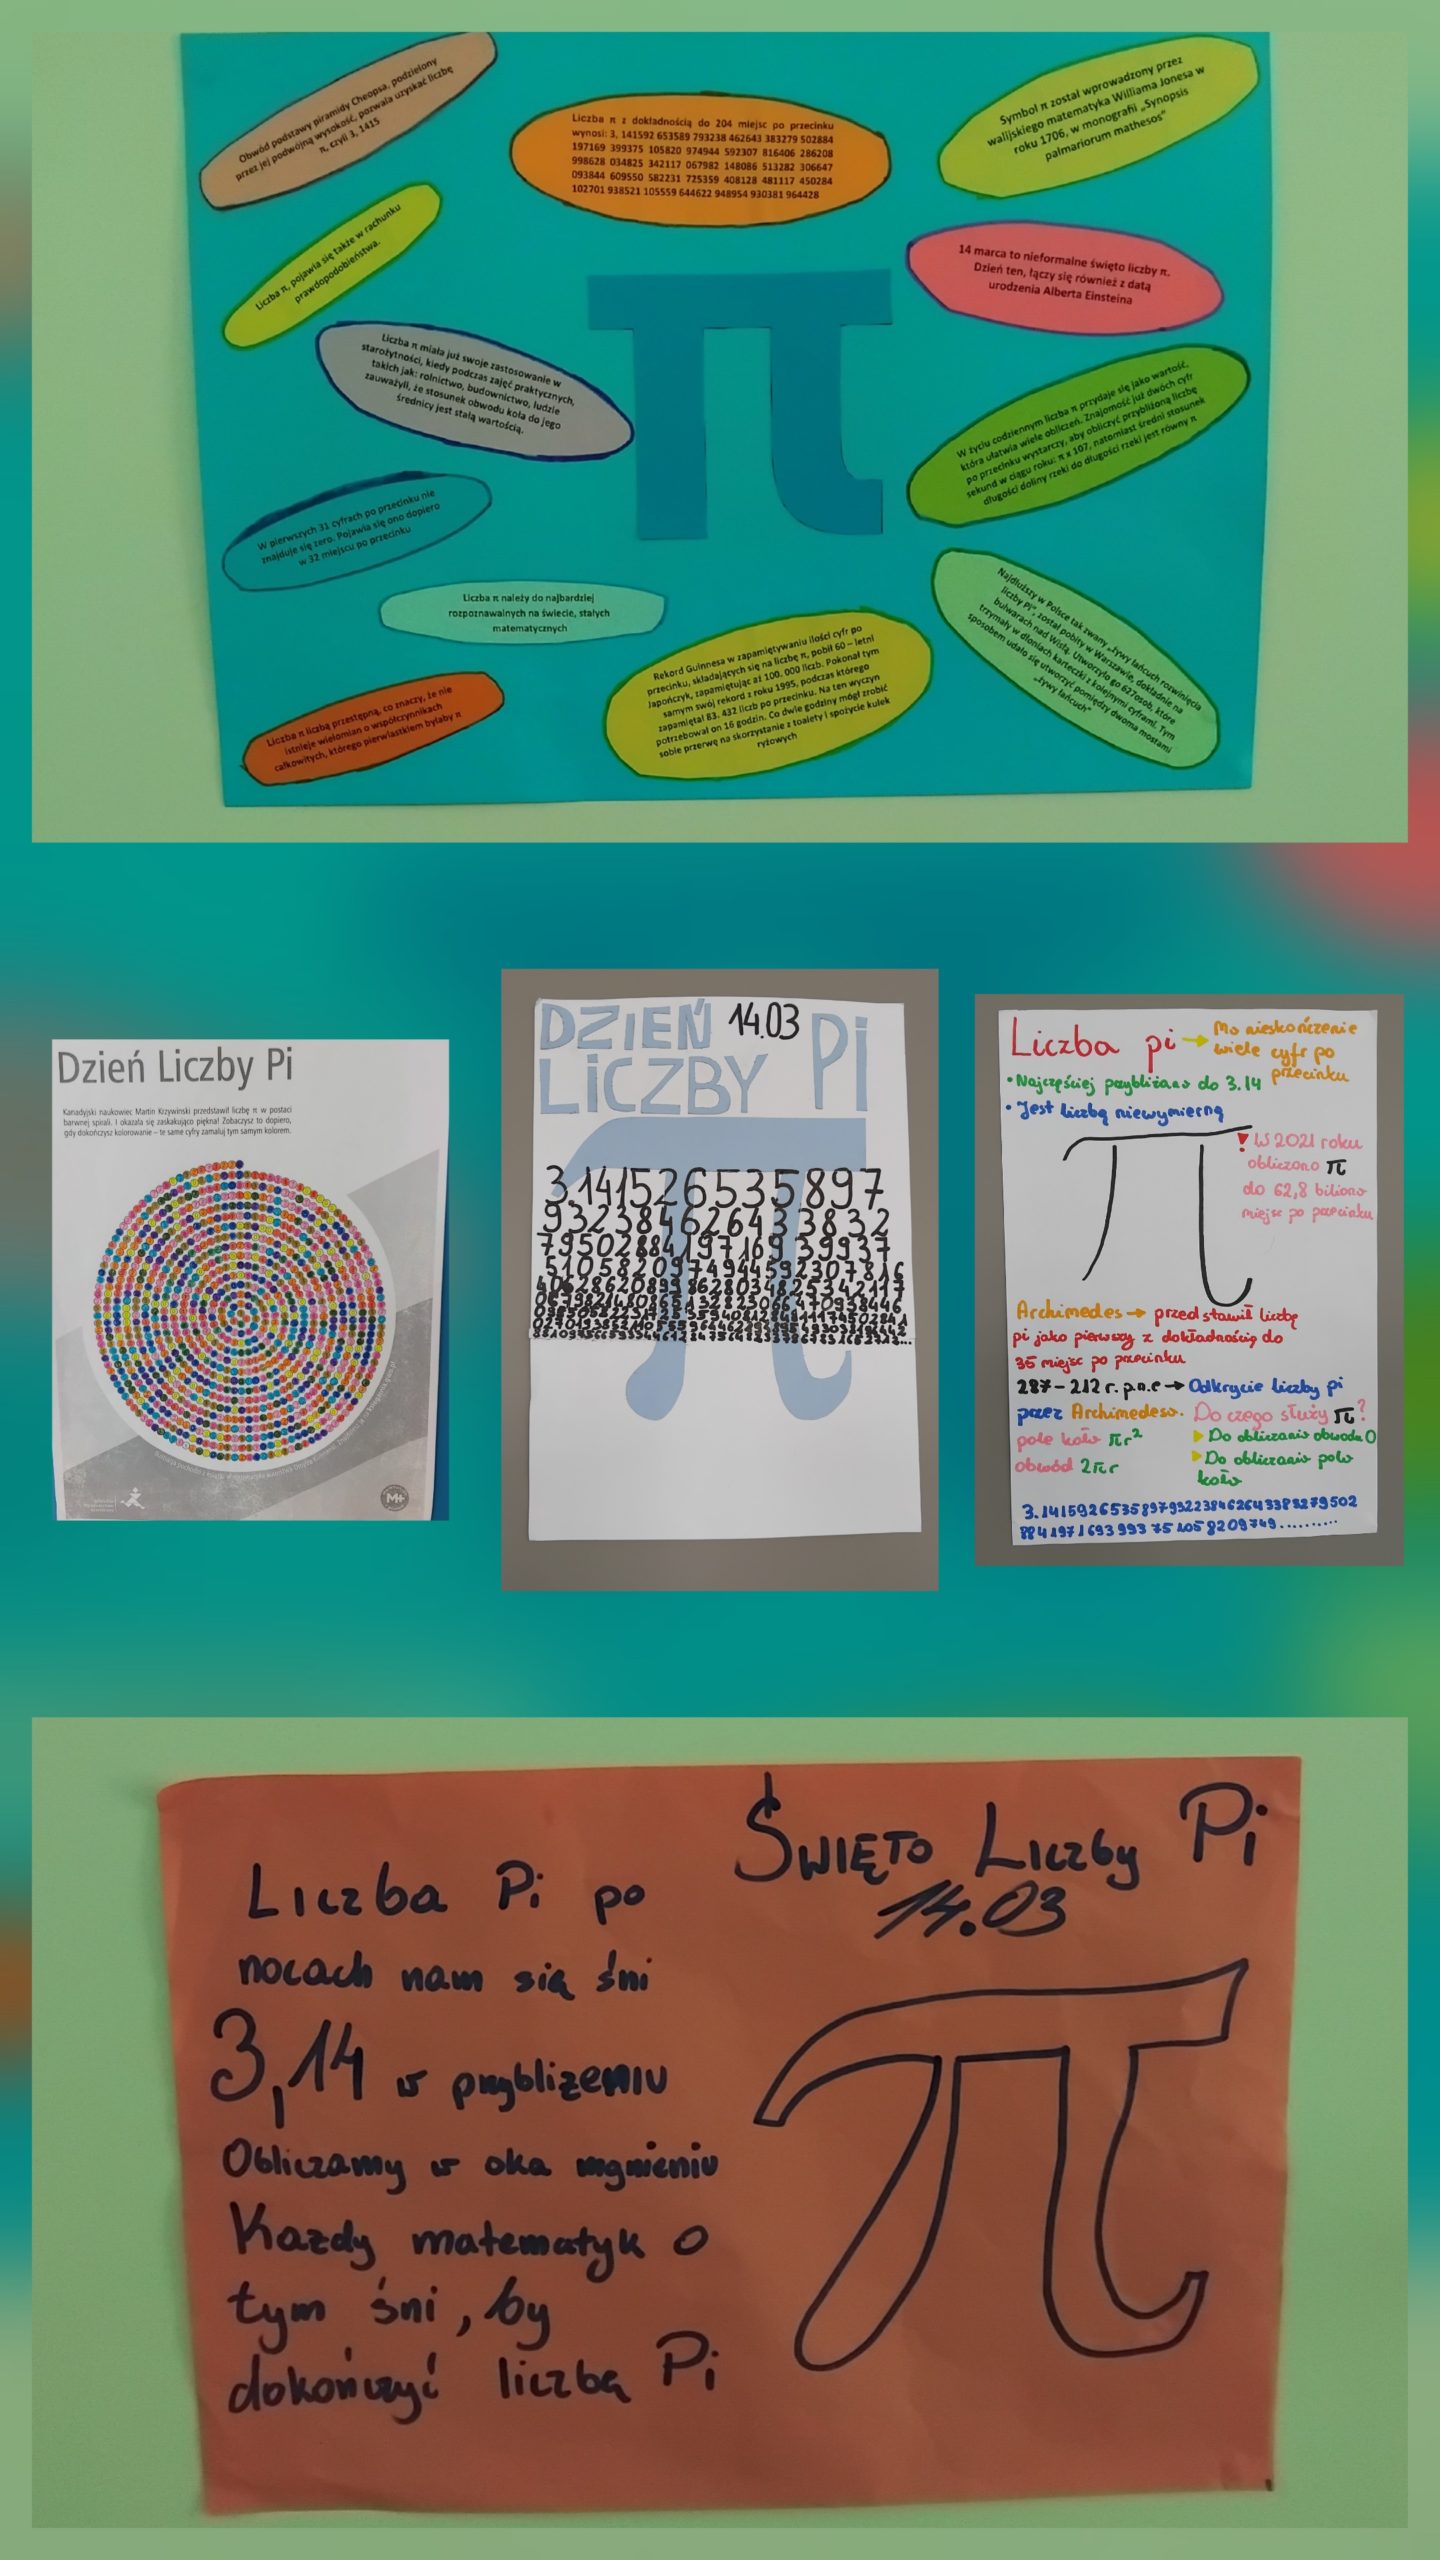 Obwód podstawy piramidy Cheopsa, podzielony
przez jej podwójną wysokość, pozwala uzyskać liczbę
π, czyli 3, 1415
Liczba π z dokładnością do 204 miejsc po przecinku
wynosi: 3, 141592 653589 793238 462643 383279 502884
197169 399375 105820 974944 592307 816406 286208
998628 034825 342117 067982 148086 513282 306647
093844 609550 582231 725359 408128 481117 450284
102701 938521 105559 644622 948954 930381 964428
Symbol π został wprowadzony przez
walijskiego matematyka Williama Jonesa w
roku 1706, w monografii „Synopsis
palmariorum mathesos”
Liczba π, pojawia się także w rachunku
prawdopodobieństwa.
14 marca to nieformalne święto liczby π.
Dzień ten, łączy się również z datą
urodzenia Alberta Einsteina
π
Liczba π miała już swoje zastosowanie w
starożytności, kiedy podczas zajęć praktycznych,
takich jak: rolnictwo, budownictwo, ludzie
zauważyli, że stosunek obwodu koła do jego
średnicy jest stałą wartością.
W życiu codziennym liczba π przydaje się jako wartość,
która ułatwia wiele obliczeń. Znajomość już dwóch cyfr
po przecinku wystarczy, aby obliczyć przybliżoną liczbę
sekund w ciągu roku: π x 107, natomiast średni stosunek
długości doliny rzeki do długości rzeki jest równy π
W pierwszych 31 cyfrach po przecinku nie
znajduje się zero. Pojawia się ono dopiero
w 32 miejscu po przecinku
Liczba π należy do najbardziej
rozpoznawalnych na świecie, stałych
matematycznych
Najdłuższy w Polsce tak zwany „żywy łańcuch rozwinięcia
liczby pi”, został pobity w Warszawie, dokładnie na
bulwarach nad Wisłą. Utworzyło go 627osób, które
trzymały w dłoniach karteczki z kolejnymi cyframi. Tym
sposobem udało się utworzyć pomiędzy dwoma mostami
„żywy łańcuch”
Liczba π liczbą przestępną, co znaczy, że nie
istnieje wielomian o współczynnikach
całkowitych, którego pierwiastkiem byłaby π
Rekord Guinnesa w zapamiętywaniu ilości cyfr po
przecinku, składających się na liczbę π, pobił 60 – letni
Japończyk, zapamiętując aż 100. 000 liczb. Pokonał tym
samym swój rekord z roku 1995, podczas którego
zapamiętał 83. 432 liczb po przecinku. Na ten wyczyn
potrzebował on 16 godzin. Co dwie godziny mógł zrobić
sobie przerwę na skorzystanie z toalety i spożycie kulek
ryżowych
Dzień Liczby Pi
Kanadyjski naukowiec Martin Krzywinski przedstawił liczbę π w postaci
barwnej spirali. I okazała się zaskakująco piękna! Zobaczysz to dopiero,
gdy dokończysz kolorowanie – te same cyfry zamaluj tym samym kolorem.
M+
DZIEŃ 14.03
LiCZBY Pi
π
3.141526535897
932384626433832
Liczba pi → Ma nieskończenie
wiele cyfr po
przecinku
• Najczęściej przybliżana do 3.14
• Jest liczbą niewymierną
π
! W 2021 roku
obliczono π
do 62,8 biliona
miejsc po przecinku
Archimedes → przedstawił liczbę
pi jako pierwszy z dokładnością do
35 miejsc po przecinku
287–212 r. p.n.e → Odkrycie liczby pi
przez Archimedesa.
Do czego służy π?
pole koła πr²
obwód 2πr
Do obliczania obwodu O
Do obliczania pola
koła
Święto Liczby Pi
14.03
π
Liczba Pi po
nocach nam się śni
3,14 w przybliżeniu
Obliczamy w oka mgnieniu
Każdy matematyk o
tym śni, by
dokończyć liczbę Pi